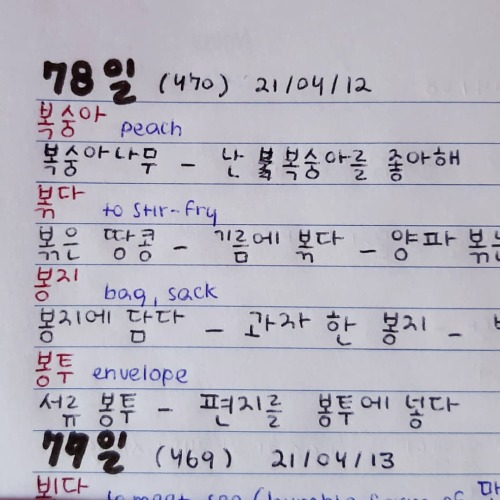 78일 (470) 21/04/12
복숭아 peach
복숭아나무 - 난 복숭아를 좋아해
볶다 to stir-fry
볶은 땅콩 - 기름에 볶다 - 양파 볶
봉지 bag, sack
봉지에 담다 - 과자 한 봉지 -
봉투 envelope
서류 봉투 - 편지를 봉투에 넣다
79일 (469) 21/04/13
뵈다 to meet, see (humble form of